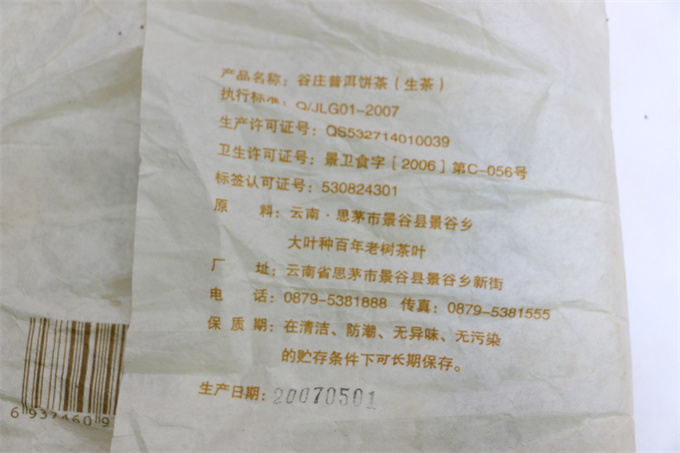 产品名称：谷庄普洱饼茶（生茶）
执行标准：Q/JLG01-2007
生产许可证号：QS532714010039
卫生许可证号：景卫食字［2006］第C-056号
标签认可证号：530824301
原　料：云南·思茅市景谷县景谷乡
大叶种百年老树茶叶
厂　址：云南省思茅市景谷县景谷乡新街
电　话：0879-5381888　传真：0879-5381555
保 质 期：在清洁、防潮、无异味、无污染
的贮存条件下可长期保存。
生产日期：20070501
6 937460 9